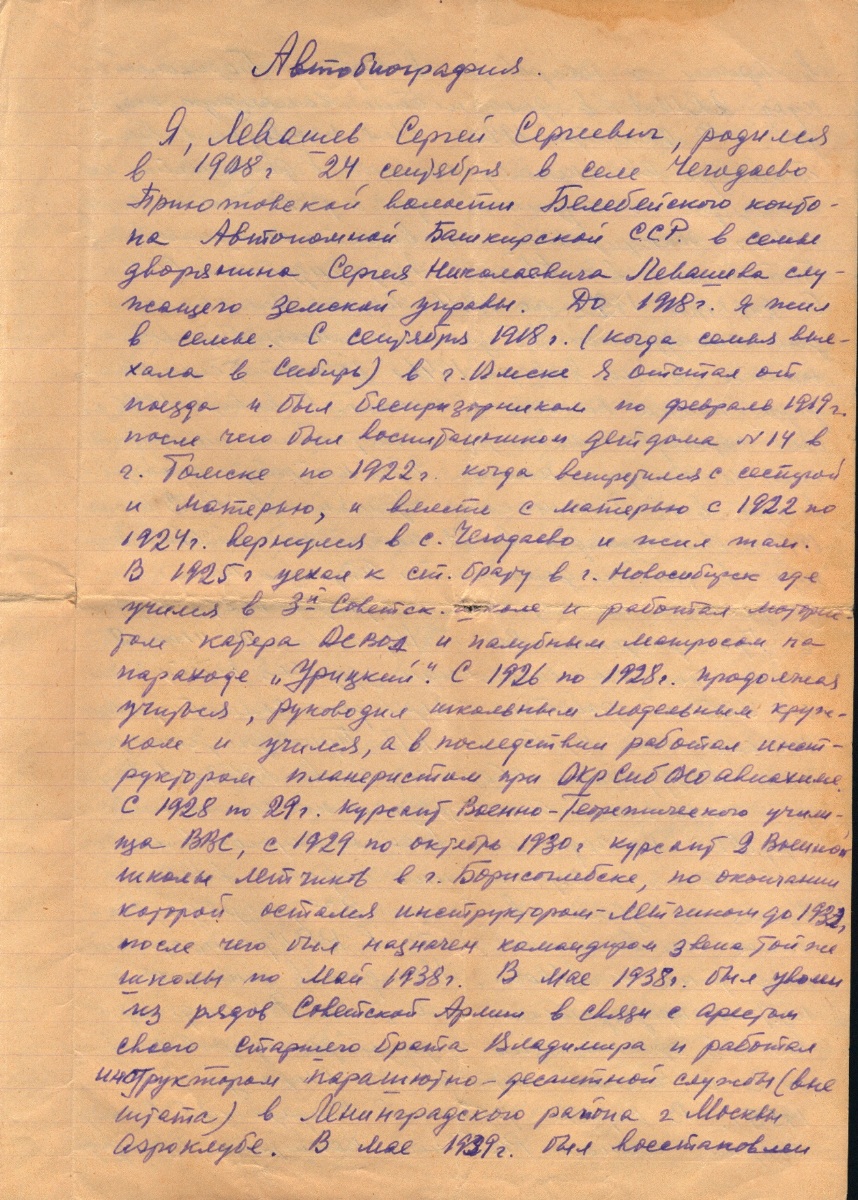 Автобиография.
Я, Левашев Сергей Сергеевич, родился
в 1908 г 24 сентября в селе Чегодаево
Приютовской волости Белебейского канто-
на Автономной Башкирской ССР. в семье
дворянина Сергея Николаевича Левашева слу-
жащего земской управы. До 1918 г. я жил
в семье. С сентября 1918 г. (когда семья вые-
хала в Сибирь) в г. Омске я отстал от
поезда и был беспризорником по февраль 1919 г.
после чего был воспитанником детдома №14 в
г. Томске по 1922 г. когда встретился с сестрой
и матерью, и вместе с матерью с 1922 по
1924 г. вернулся в с. Чегодаево и жил там.
В 1925 г уехал к ст. брату в г. Новосибирск где
учился в 3й Советск. школе и работал мотори-
том катера ОСВОД и палубным матросом на
параходе „Урицкий". С 1926 по 1928 г. продолжая
учиться, руководил школьным модельным круж-
ком и учился, а в последствии работал инст-
руктором планеристом при ОкрСибОсоавиахиме.
С 1928 по 29 г. курсант Военно-Теоретического учили-
ща ВВС, с 1929 по октябрь 1930 г курсант 2 Военной
школы летчиков в г. Борисоглебске, по окончании
которой остался инструктором-летчиком до 1932,
после чего был назначен командиром звена той же
школы по Май 1938 г. В мае 1938 г. был уволен
из рядов Советской Армии в связи с арестом
своего старшего брата Владимира и работал
инструктором парашютно-десантной службы (вне
штата) в Ленинградского района г Москвы
Аэроклубе. В мае 1939 г. был восстановлен